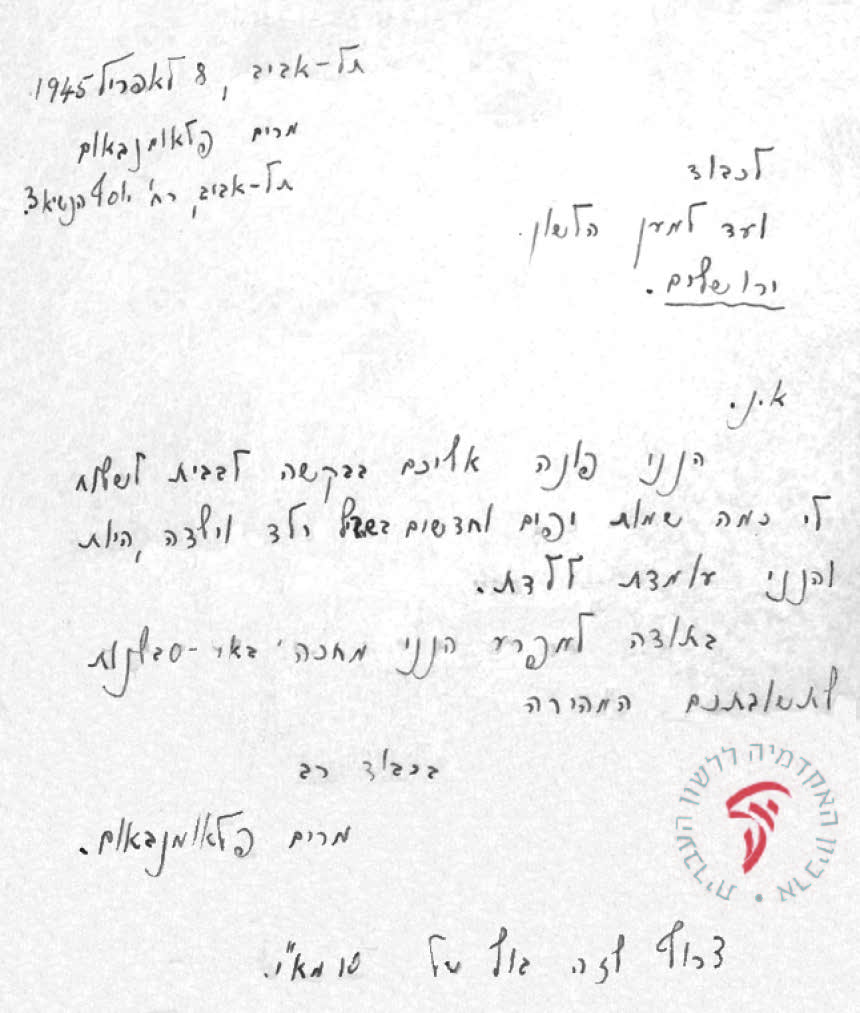 תל-אביב, 8 לאפריל 1945.
מרים פלאומנבאום
תל-אביב, רח' יוסף הנשיא 3.
לכבוד
ועד למען הלשון.
ירושלים.
א.נ.
הנני פונה אליכם בבקשה לבבית לשלח
לי כמה שמות יפים וחדשים בשביל ילד וילדה, היות
והנני עומדת ללדת.
באודה למפרע הנני מחכה' באי-סבלנות
לתשובתכם המהירה
בכבוד רב
מרים פלאומנבאום.
צרוף לזה בול של 10 מא"י.
ארכיון האקדמיה ללשון העברית